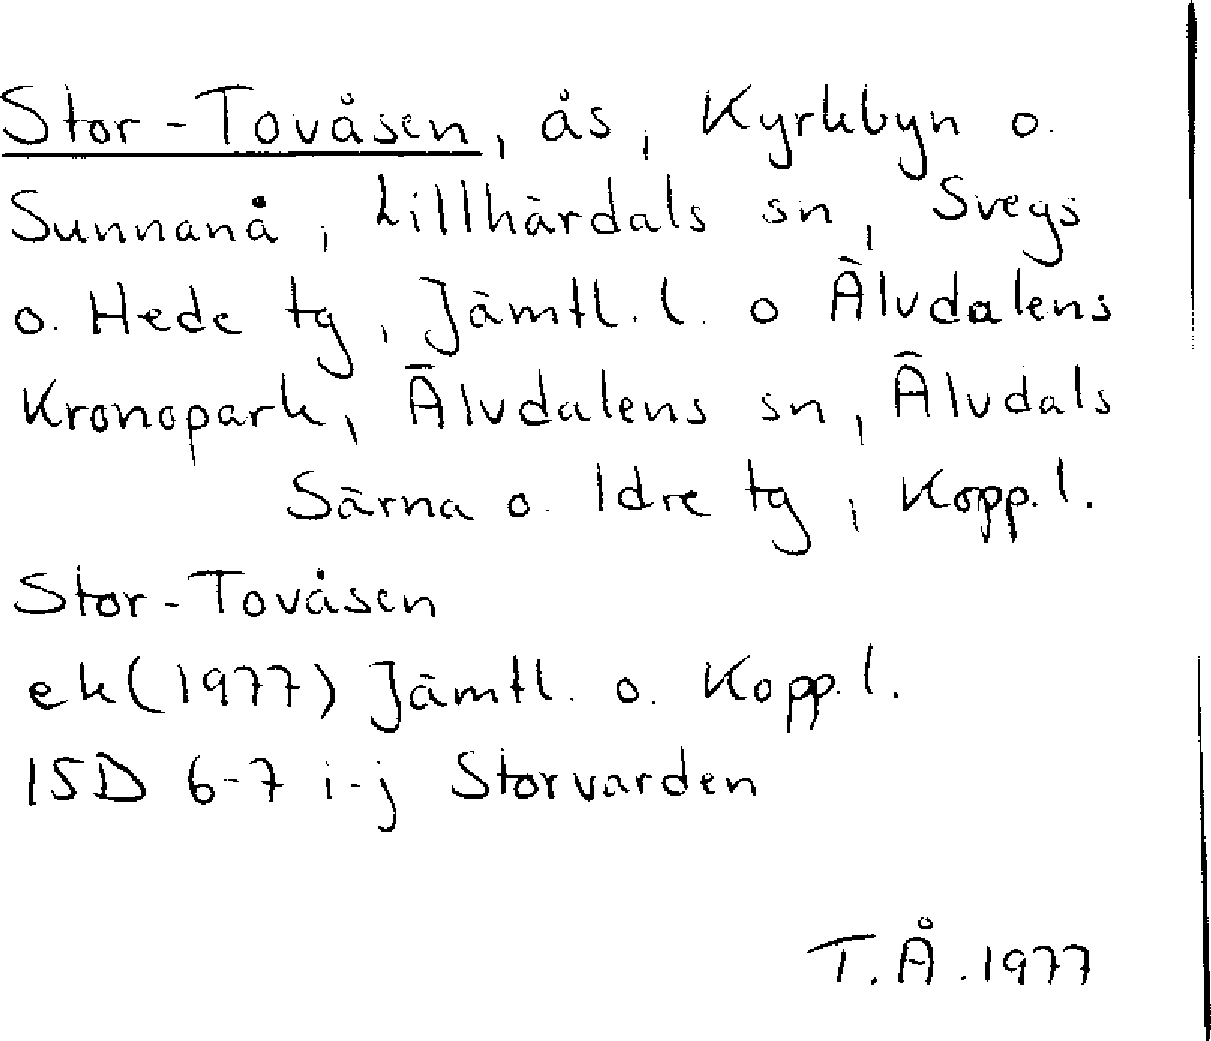 Stor-Tovåsen, ås, Kyrkbyn o.
Sunnanå, Lillhärdals sn, Svegs
o. Hede tg, Jämtl. l. o Älvdalens
Kronopark, Älvdalens sn, Älvdals
Särna o. Idre tg, Kopp. l.
Stor-Tovåsen
ek (1977) Jämtl. o. Kopp. l.
15D 6-7 i-j Storvarden
T.Å. 1977